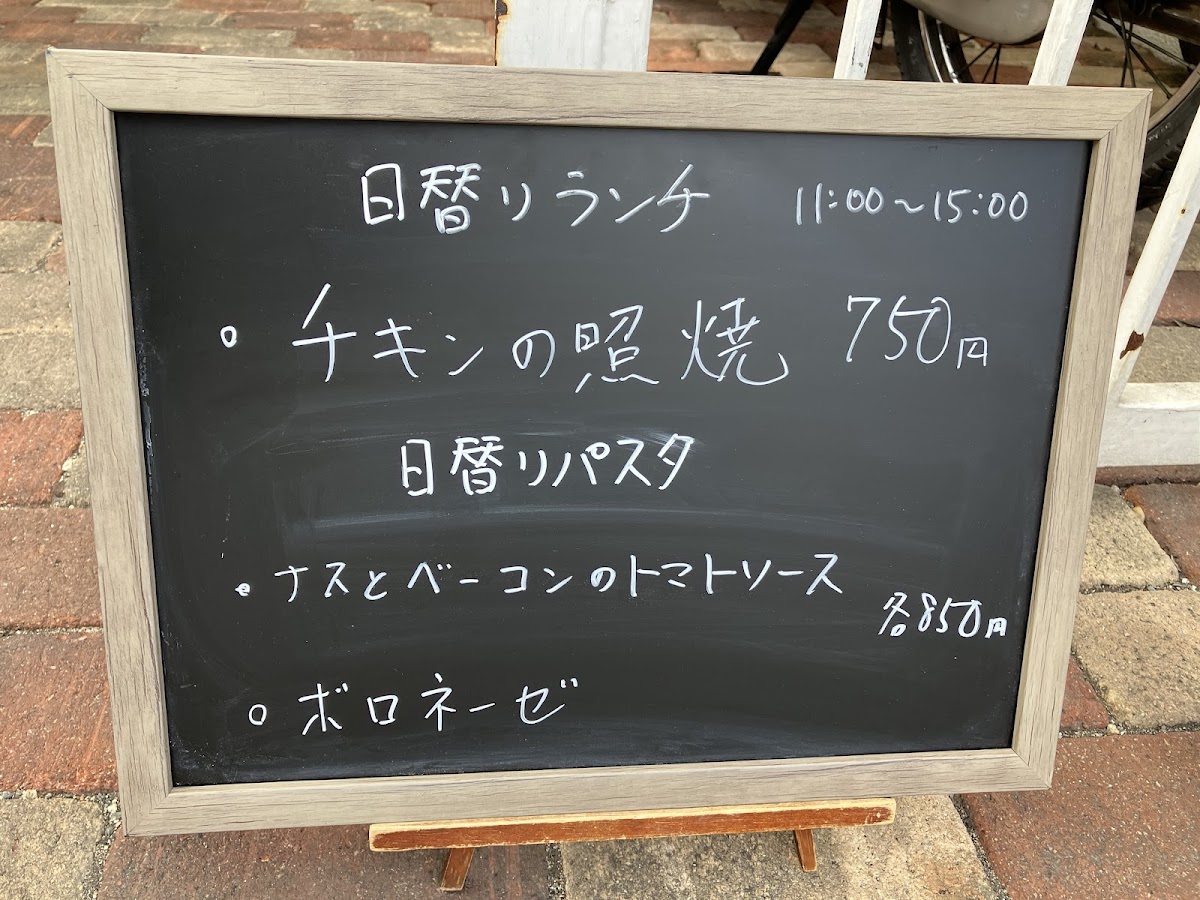 日替りランチ 11:00～15:00
○ チキンの照焼 750円
日替りパスタ
• ナスとベーコンのトマトソース
各850円
○ ボロネーゼ